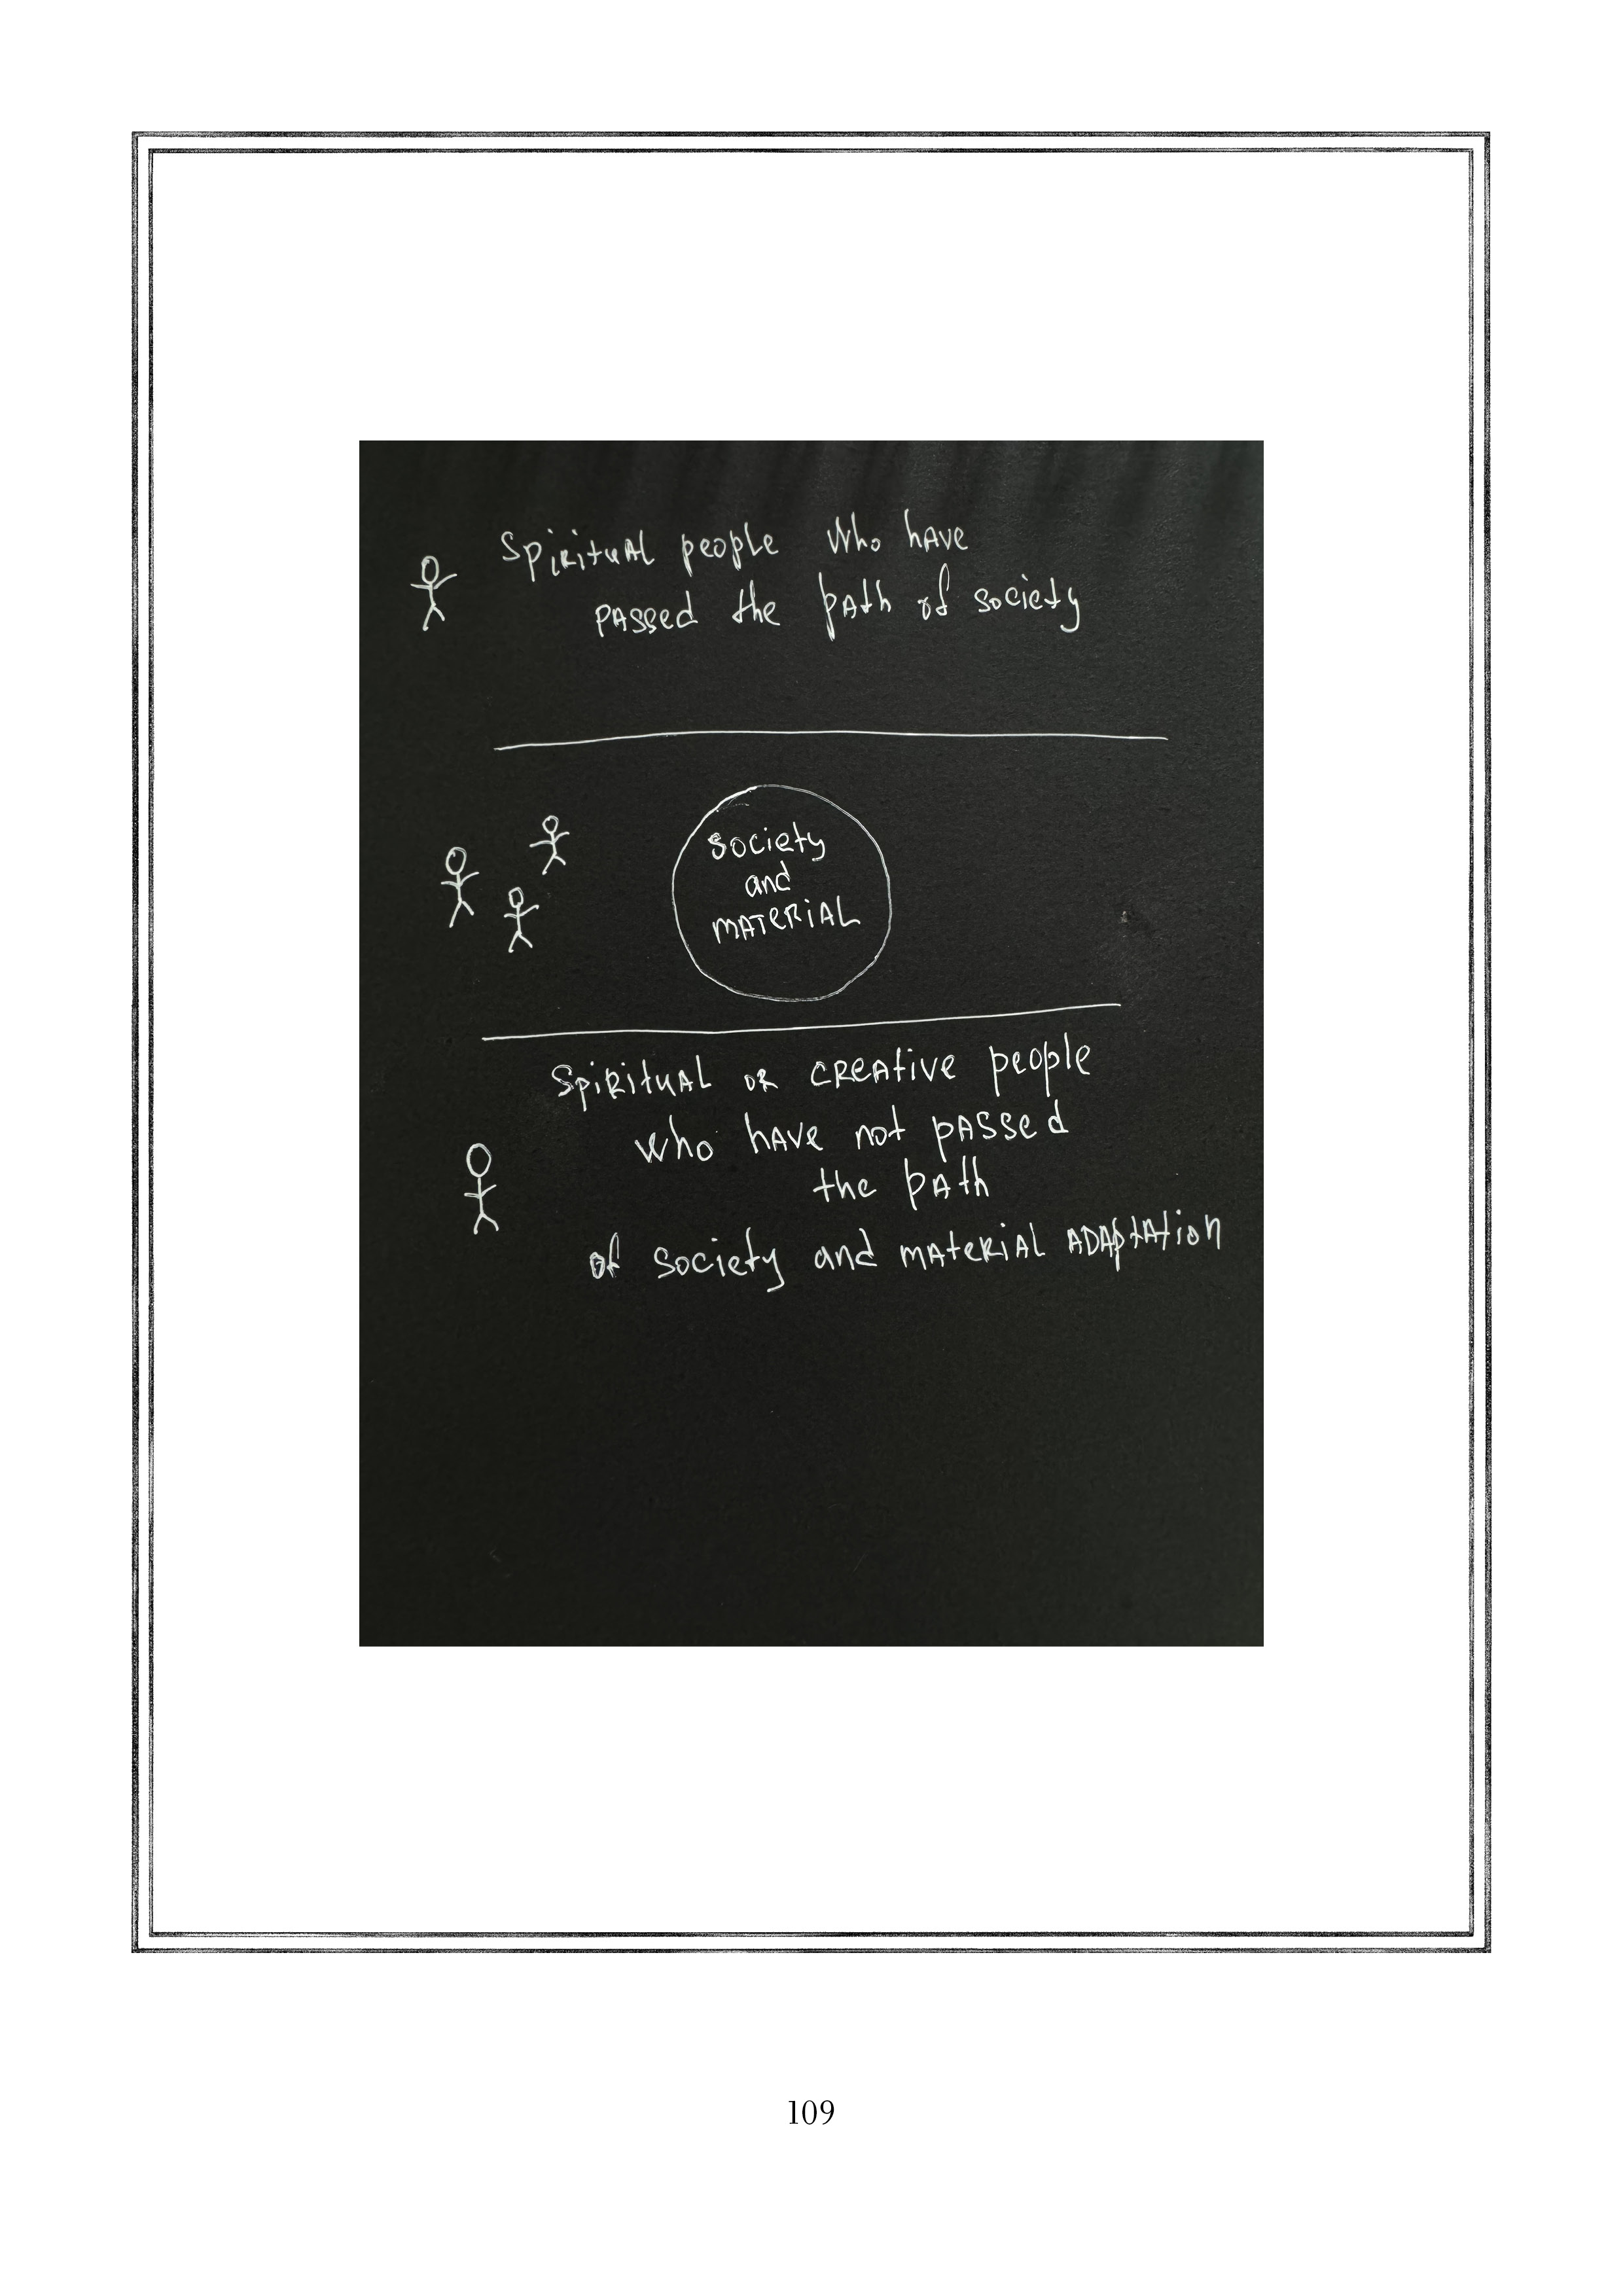 Spiritual people who have
passed the path of society
society
and
material
Spiritual or creative people
who have not passed
the path
of society and material adaptation
109